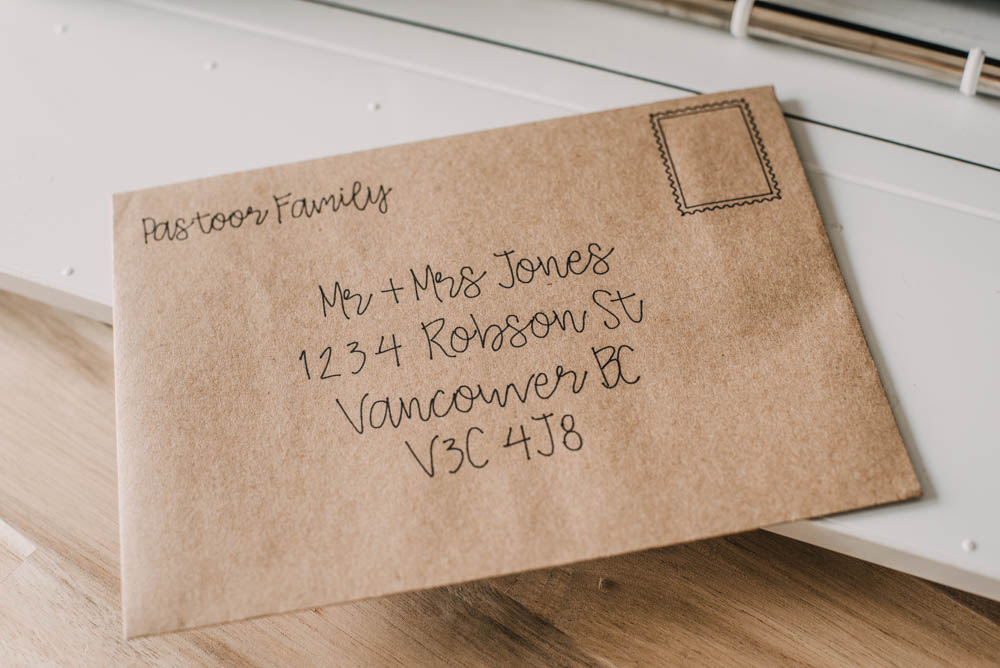 Pastoor Family
Mr + Mrs Jones
1234 Robson St
Vancouver BC
V3C 4J8